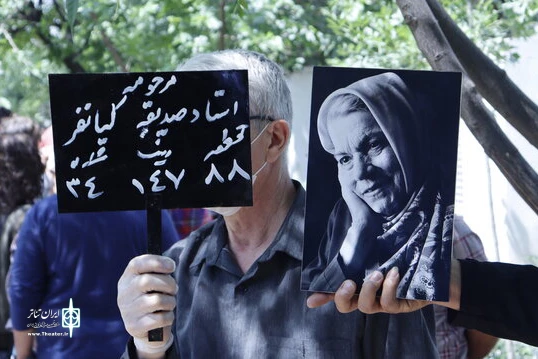 مرحومه
استاد صدیقه کیانفر
قطعه ردیف شماره
۸۸ ۱۴۷ ۳۴
ایران تئاتر
www.Theater.ir